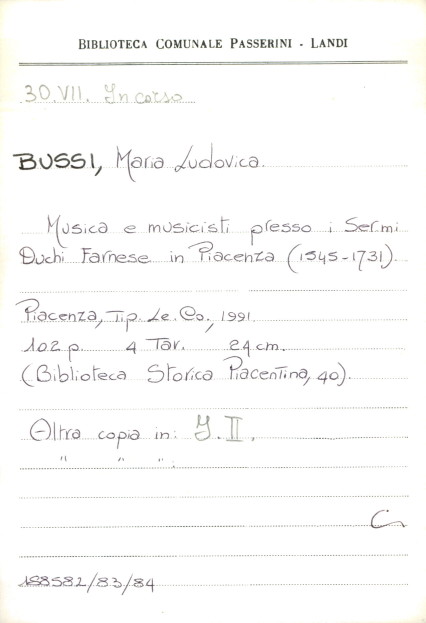 BIBLIOTECA COMUNALE PASSERINI - LANDI
30.VII. In corso
BUSSI, Maria Ludovica.
Musica e musicisti presso i Ser.mi
Duchi Farnese in Piacenza (1545-1731).
Piacenza, Tip. Le. Co., 1991.
102 p. 4 Tav. 24 cm.
(Biblioteca Storica Piacentina, 40).
Altra copia in: Y.II.
" " ":
188582/83/84